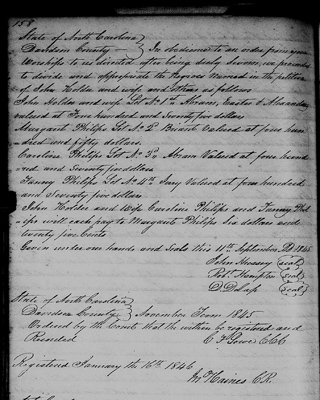 158
State of North Carolina
Davidson County } In obedience to an order from your
Worships to us directed after being duly Sworn, we proceeded
to divide and appropriate the Negroes Named in the petition
of John Holder and wife and others as follows
John Holder and wife Lot No 1st Abram, Easter & Alexander
valued at Four hundred and Seventy five dollars
Margaret Philips Lot No 2d Valued at four hun
dred and fifty dollars.
Caroline Philips Lot No 3d Abram Valued at four hund
red and Seventy five dollars
Fanny Philips Lot No 4th Valued at four hundred
and Seventy five dollars
John Holder and Wife Caroline Philips and Fanny Phil
ips will each pay to Margaret Philips Six dollars and
twenty five Cents
Given under our hands and Seals this 11th September AD 1845
John (seal)
Robt. Hampton (seal)
D. (seal)
State of North Carolina
Davidson County } November Term 1845
Ordered by the Court that the within be registered and
Recorded
C. F. Lowe C.C.C.
Registered January the 16th 1846
M Haines C.R.